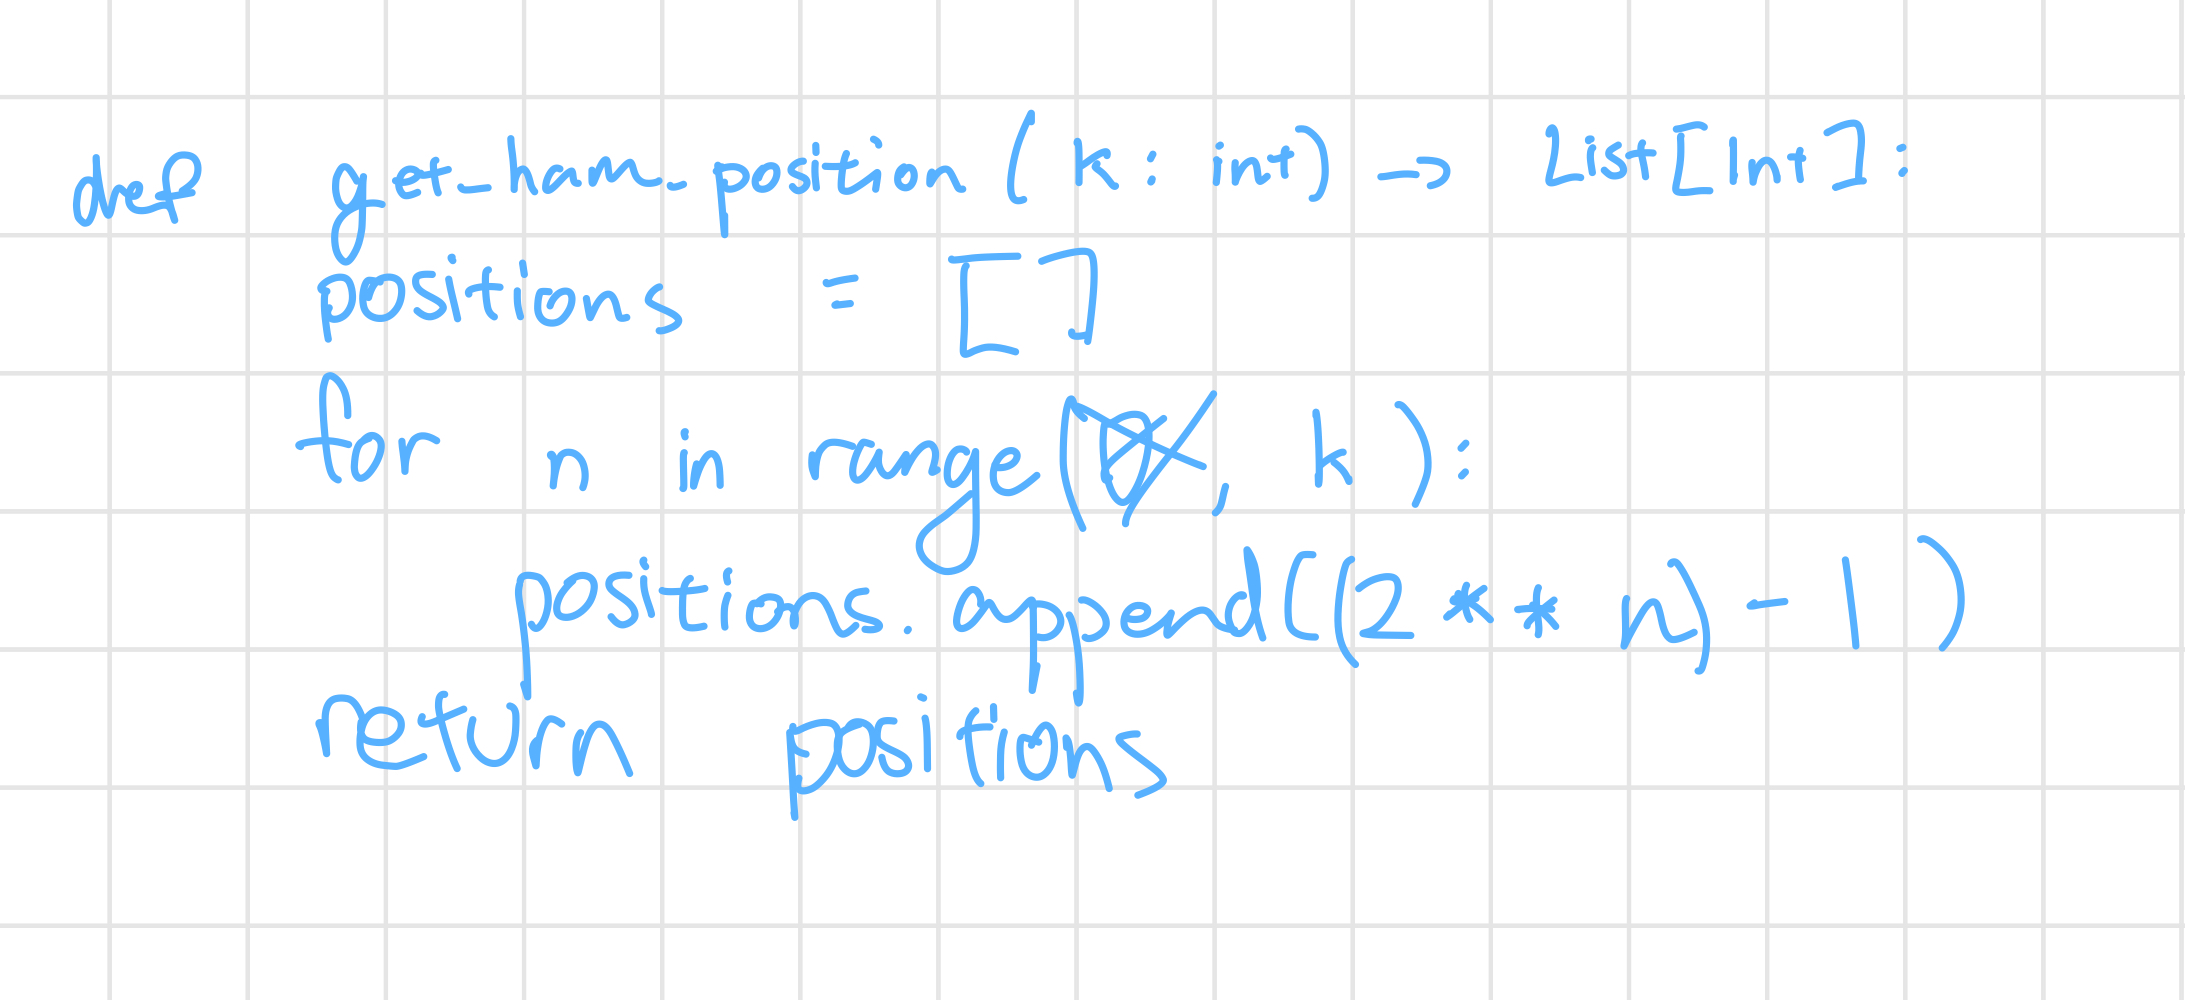 def get_ham_position(k: int) -> List[Int]:
positions = []
for n in range(, k):
positions.append((2 ** n) - 1)
return positions